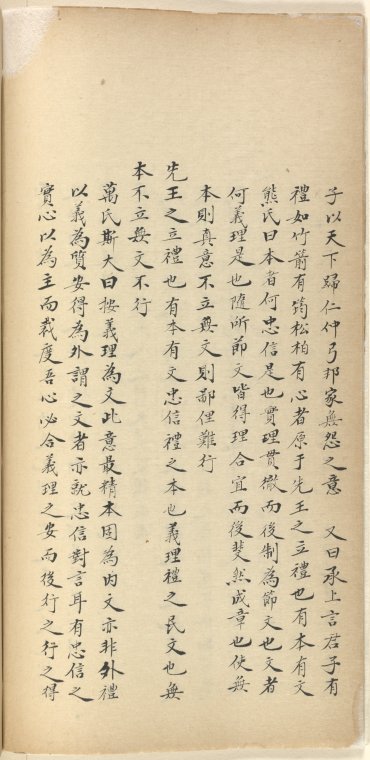 子以天下歸仁仲弓邦家無怨之意　又曰承上言君子有
禮如竹箭有筠松柏有心者原于先王之立禮也有本有文
熊氏曰本者何忠信是也實理貫徹而後制為節文也文者
何義理是也隨所節文皆得理合宜而後斐然成章也使無
本則真意不立無文則鄙俚難行
先王之立禮也有本有文忠信禮之本也義理禮之民文也無
本不立無文不行
萬氏斯大曰按義理為文此意最精本固為內文亦非外禮
以義為質安得為外謂之文者亦就忠信對言耳有忠信之
實心以為主而裁度吾心必合義理之安而後行之行之得